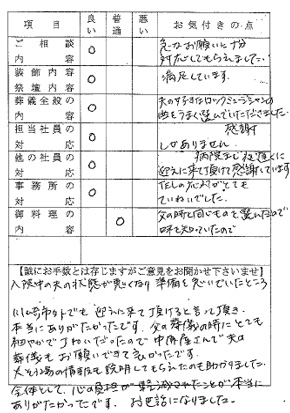 項目 良い 普通 悪い お気付きの点
ご相談内容 ○ 急なお願いに十分
対応してもらえました。
装飾内容
祭壇内容 ○ 満足しています。
葬儀全般の内容 ○ 夫の好きだったロックミュージシャンの
曲をうまく選んでいただきました。
担当社員の対応 ○ 感謝
しかありません
他の社員の対応 ○ 病院まで夜遅くに
迎えに来て頂けて感謝しています
事務所の対応 ○ 応対がとても
ていねいでした。
御料理の内容 ○ 父の時と同じものを選んだので
味を知っていたので
【誠にお手数とは存じますがご意見をお聞かせ下さいませ】
入院中の夫の状態が悪くなり 準備を急いでいたところ
でも迎えに来て頂けると言って頂き、
本当にありがたかったです。父の葬儀の時にとても
細やかで んで夫の
葬儀もお願いできて良かったです。
説明してもらえたのも助かりました。
全体として、心の負担が 本当に
ありがたかったです。お世話になりました。